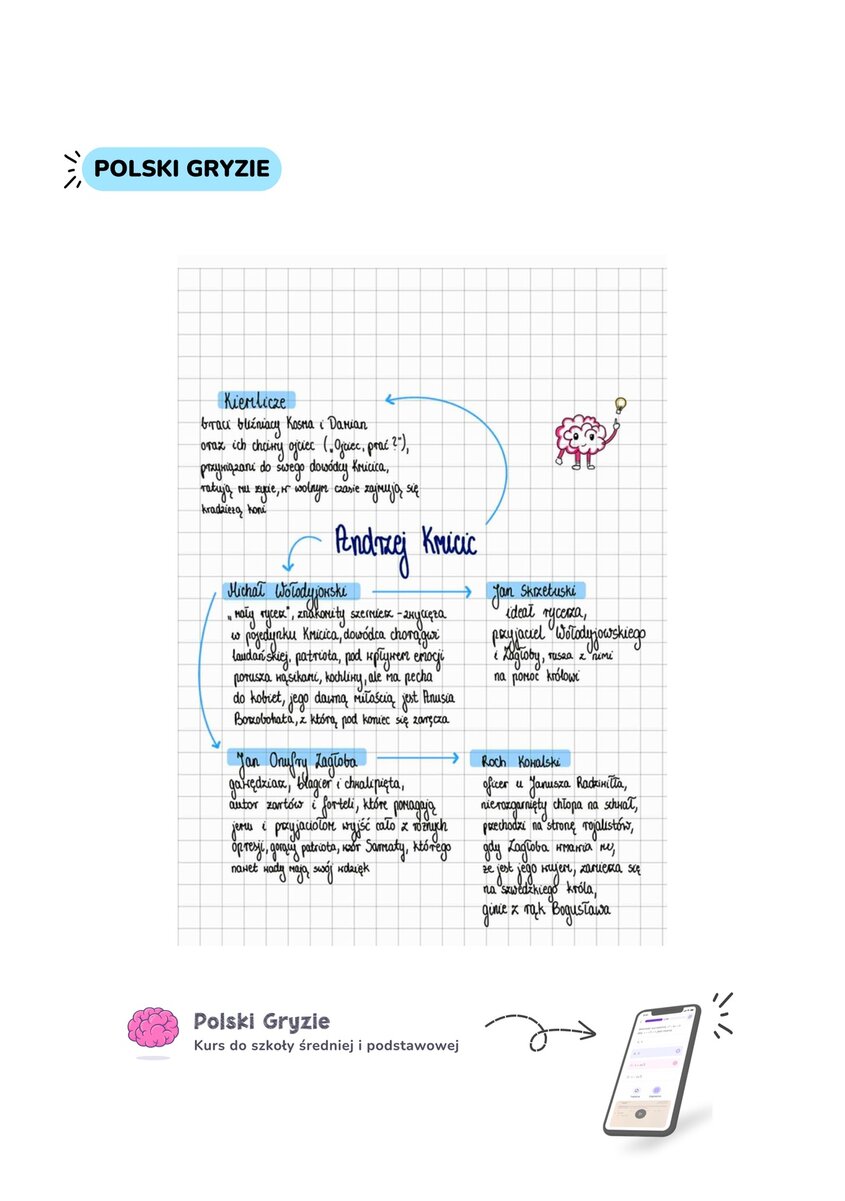 POLSKI GRYZIE
Kiemlicze
braci bliźniacy Kosma i Damian
oraz ich chciwy ojciec („Ojciec, prać?"),
przywiązani do swego dowódcy Kmicica,
ratują mu życie, w wolnym czasie zajmują się
kradzieżą koni
Andrzej Kmicic
Michał Wołodyjowski
„mały rycerz", znakomity szermierz - zwycięża
w pojedynku Kmicica, dowódca chorągwi
laudańskiej, patriota, pod wpływem emocji
porusza wąsikami, kochliwy, ale ma pecha
do kobiet, jego dawną miłością jest Anusia
Borzobohata, z którą pod koniec się zaręcza
Jan Skrzetuski
ideał rycerza,
przyjaciel Wołodyjowskiego
i Zagłoby, rusza z nimi
na pomoc królowi
Jan Onufry Zagłoba
gawędziarz, blagier i chwalipięta,
autor żartów i forteli, które pomagają
jemu i przyjaciołom wyjść cało z różnych
opresji, gorący patriota, wzór Sarmaty, którego
nawet wady mają swój wdzięk
Roch Kowalski
oficer u Janusza Radziwiłła,
nierozgarnięty chłopa na schwał,
przechodzi na stronę rojalistów,
gdy Zagłoba wmawia mu,
że jest jego wujem, zamierza się
na szwedzkiego króla,
ginie z rąk Bogusława
Polski Gryzie
Kurs do szkoły średniej i podstawowej